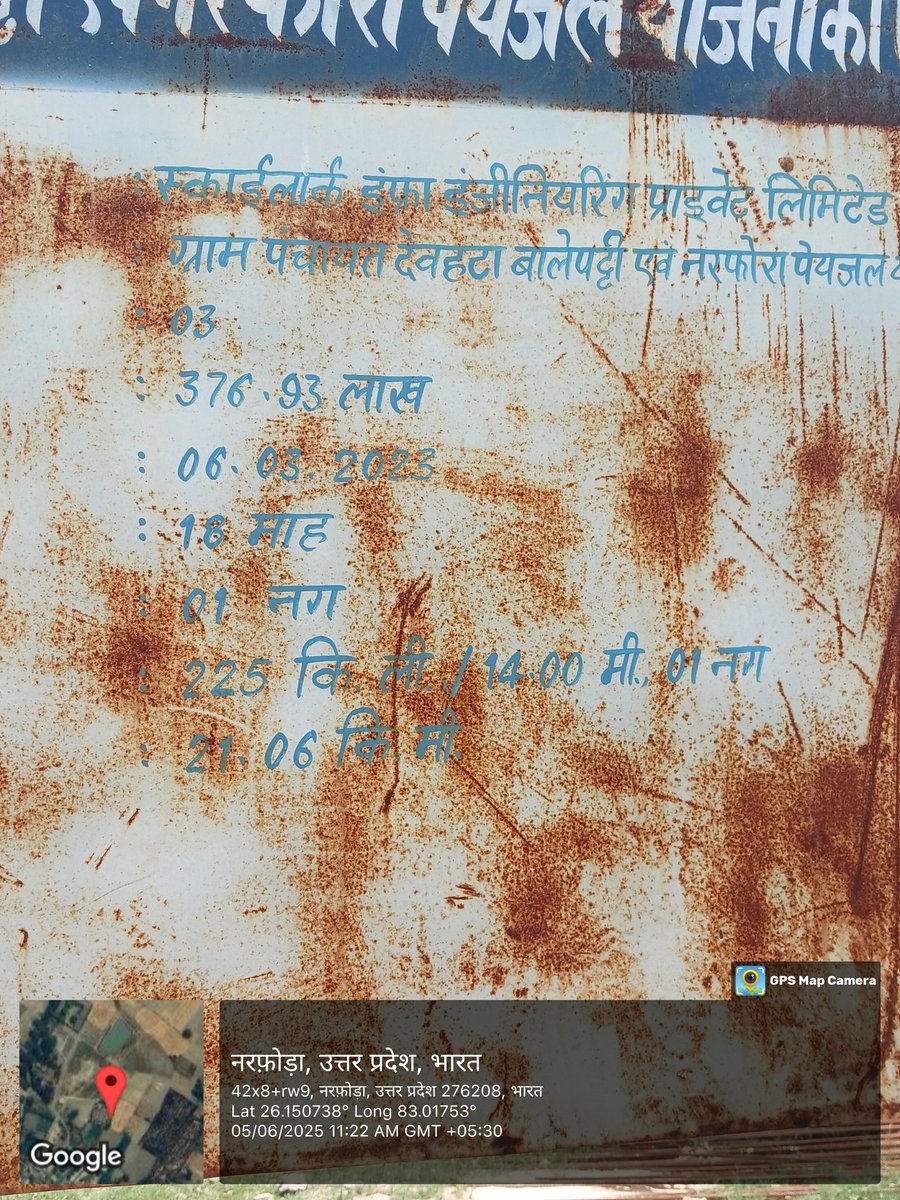 एवं नरफोरा पेयजल योजना का
: स्काईलार्क इंफ्रा इंजीनियरिंग प्राइवेट लिमिटेड
: ग्राम पंचायत देवहटा बालेपट्टी एवं नरफोरा पेयजल
: 03
: 376.93 लाख
: 06.03.2023
: 18 माह
: 01 नग
: 225 कि. ली. / 14.00 मी., 01 नग
: 21.06 कि. मी.
GPS Map Camera
नरफ़ोड़ा, उत्तर प्रदेश, भारत
42x8+rw9, नरफ़ोड़ा, उत्तर प्रदेश 276208, भारत
Lat 26.150738° Long 83.01753°
05/06/2025 11:22 AM GMT +05:30
Google